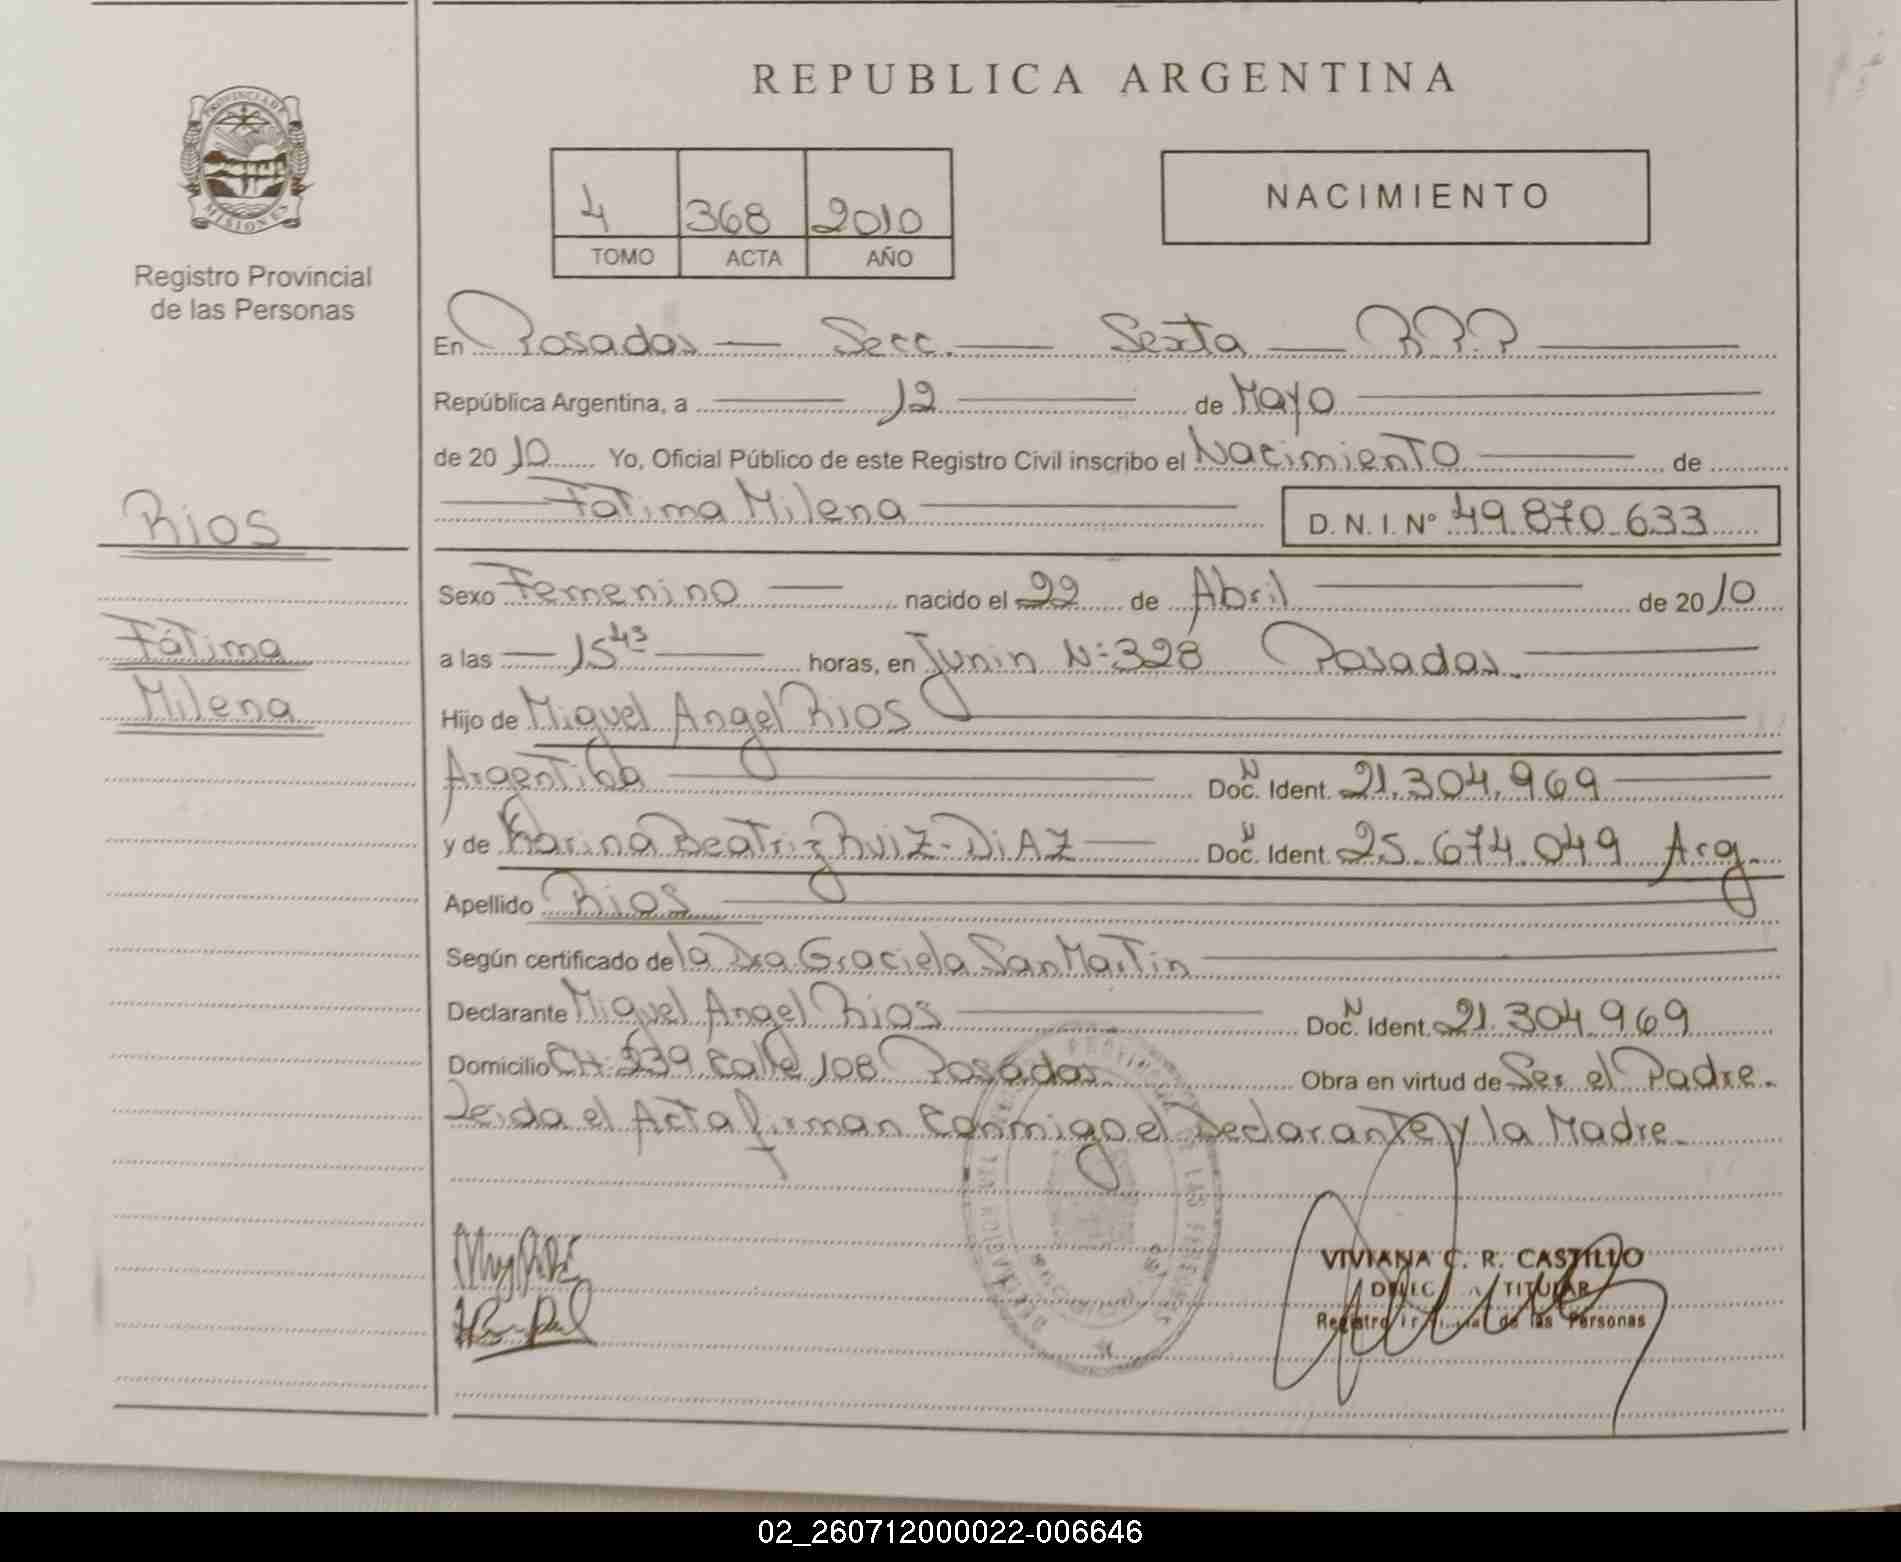 REPUBLICA ARGENTINA
PROVINCIA DE
MISIONES
Registro Provincial
de las Personas
4 368 2010
TOMO ACTA AÑO
NACIMIENTO
En Posadas — Secc. — Sexta — R.P.P
República Argentina, a 12 de Mayo
de 2010 Yo, Oficial Público de este Registro Civil inscribo el Nacimiento de
Fátima Milena D.N.I. Nº 49.870.633
Rios
Fátima
Milena
Sexo Femenino nacido el 22 de Abril de 2010
a las 15 43 horas, en Junin N: 328 Posadas.
Hijo de Miguel Angel Rios
Argentina Nº Doc. Ident. 21.304.969
y de Karina Beatriz Ruiz-Diaz Nº Doc. Ident. 25.674.049 Arg.
Apellido Rios
Según certificado de la Dra Graciela San Martin
Declarante Miguel Angel Rios Nº Doc. Ident. 21.304.969
Domicilio CH: 239 Calle 108 Posadas Obra en virtud de Ser el Padre.
Leida el Acta firman Conmigo el Declarante y la Madre.
VIVIANA C. R. CASTILLO
TITULAR
Registro de las Personas
02_260712000022-006646